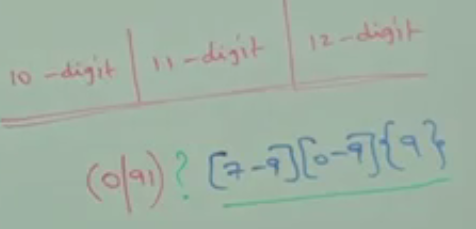 10-digit | 11-digit | 12-digit
(0|91)? [7-9][0-9]{9}